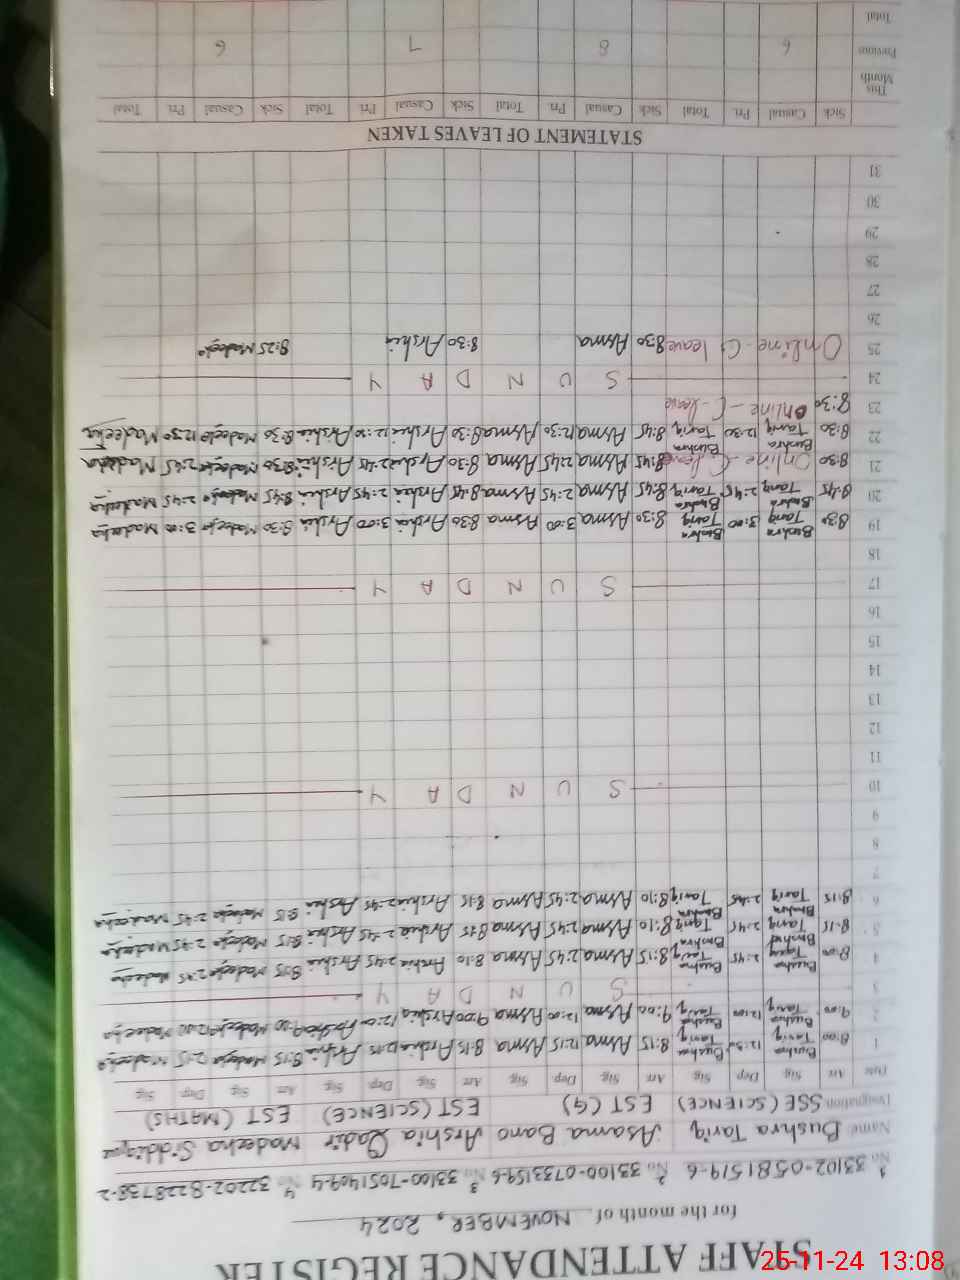 STAFF ATTENDANCE REGISTER
for the month of NOVEMBER, 2024
No 1 33102-0581519-6 No 2 33100-0733159-6 No 3 33100-7051409-4 No 4 32202-8228738-2
Name Bushra Tariq Asama Bano Arshia Qadir Madeeha Siddique
Designation SSE (SCIENCE) EST (G) EST (SCIENCE) EST (MATHS)
Date Arr Sig Dep Sig Arr Sig Dep Sig Arr Sig Dep Sig Arr Sig Dep Sig
1 8:00 Bushra Tariq Bushra Tariq 8:15 Asma 12:15 Asma 8:15 Arshia Arshia 8:15 Madeeha 12:15 Madeeha
2 9:00 Bushra Tariq 12:00 Bushra Tariq 9:00 Asma 12:00 Asma 9:00 Arshia 12:00 Arshia 9:30 Madeeha 12:00 Madeeha
3 S U N D A Y
4 8:00 Bushra Tariq 2:45 Bushra Tariq 8:15 Asma 2:45 Asma 8:10 Arshia 2:45 Arshia 8:15 Madeeha 2:45 Madeeha
5 8:15 Bushra Tariq 2:45 Bushra Tariq 8:10 Asma 2:45 Asma 8:15 Arshia 2:45 Arshia 8:15 Madeeha 2:45 Madeeha
6 8:15 Bushra Tariq 2:45 Bushra Tariq 8:10 Asma 2:45 Asma 8:15 Arshia 2:45 Arshia 8:15 Madeeha 2:45 Madeeha
7
8
9
10 S U N D A Y
11
12
13
14
15
16
17 S U N D A Y
18
19 8:30 Bushra Tariq 3:00 Bushra Tariq 8:30 Asma 3:00 Asma 8:30 Arshia 3:00 Arshia 8:30 Madeeha 3:00 Madeeha
20 8:45 Bushra Tariq 2:45 Bushra Tariq 8:45 Asma 2:45 Asma 8:45 Arshia 2:45 Arshia 8:45 Madeeha 2:45 Madeeha
21 8:30 Online - C leave 8:45 Asma 2:45 Asma 8:30 Arshia 2:45 Arshia 8:30 Madeeha 2:45 Madeeha
22 8:30 Bushra Tariq 12:30 Bushra Tariq 8:45 Asma 12:30 Asma 8:30 Arshia 12:30 Arshia 8:30 Madeeha 12:30 Madeeha
23 8:30 Online - C - leave
24 S U N D A Y
25 Online - C leave 8:30 Asma 8:30 Arshia 8:25 Madeeha
26
27
28
29
30
31
STATEMENT OF LEAVES TAKEN
Sick Casual Pri. Total Sick Casual Pri. Total Sick Casual Pri. Total Sick Casual Pri. Total
This Month
Previous 6 8 7 6
Total
25-11-24 13:08